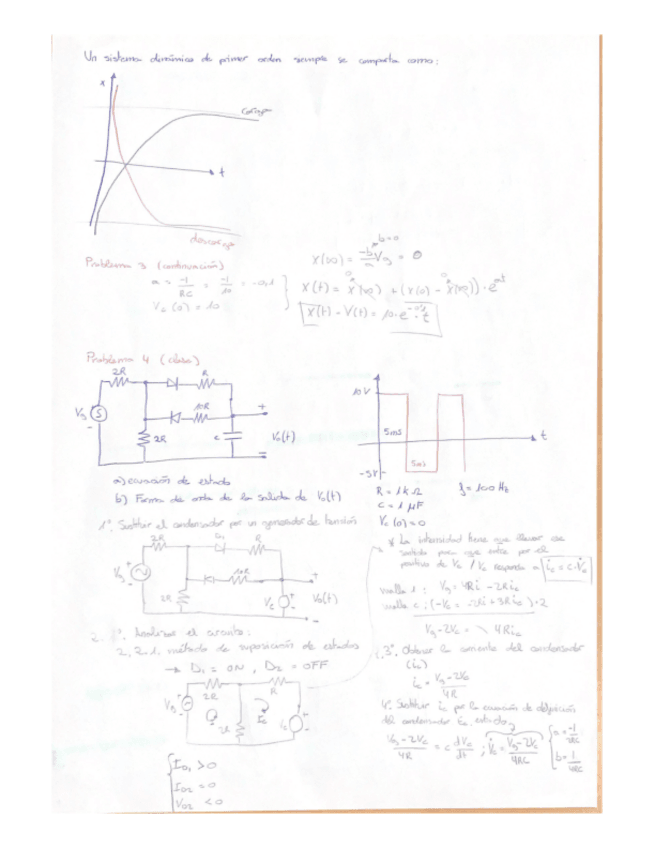 Un sistema dinámico de primer orden siempre se comporta como:
x
carga
t
descarga
b=0
X(∞) = -b/a Vg = 0
Problema 3 (continuación)
a = -1/RC = -1/10 = -0,1
Vc(0) = 10
X(t) = X(∞) + (X(0) - X(∞)) · e^at
X(t) - V(t) = 10 · e^-0'1 · t
Problema 4 (clase)
2R
R
10R
Vg
2R
c
Vo(t)
10V
5ms
t
-5V
R = 1 kΩ
f = 100 Hz
C = 1 µF
Vc(0) = 0
a) ecuación de estado
b) Forma de onda de la salida de Vo(t)
1º. Sustituir el condensador por un generador de tensión
2R
D1
R
10R
Vg
2R
Vc
Vo(t)
* La intensidad tiene que llevar ese
sentido para que entre por el
positivo de Vc / Vc responda a ic = C · V̇c
malla 1: Vg = 4Ri - 2Ric
malla c: (-Vc = -2Ri + 3Ric) · 2
Vg - 2Vc = 4Ric
2º. Analizar el circuito:
2.2.1. método de suposición de estados
→ D1 = ON, D2 = OFF
2R
R
Vg
2R
3º. Obtener la corriente del condensador
(ic)
ic = Vg - 2Vc / 4R
4º. Sustituir ic por la ecuación de definición
del condensador
Vg - 2Vc / 4R = c dVc/dt ; V̇c = Vg - 2Vc / 4RC
b = 1/4RC
ID1 > 0
ID2 = 0
VD2 < 0